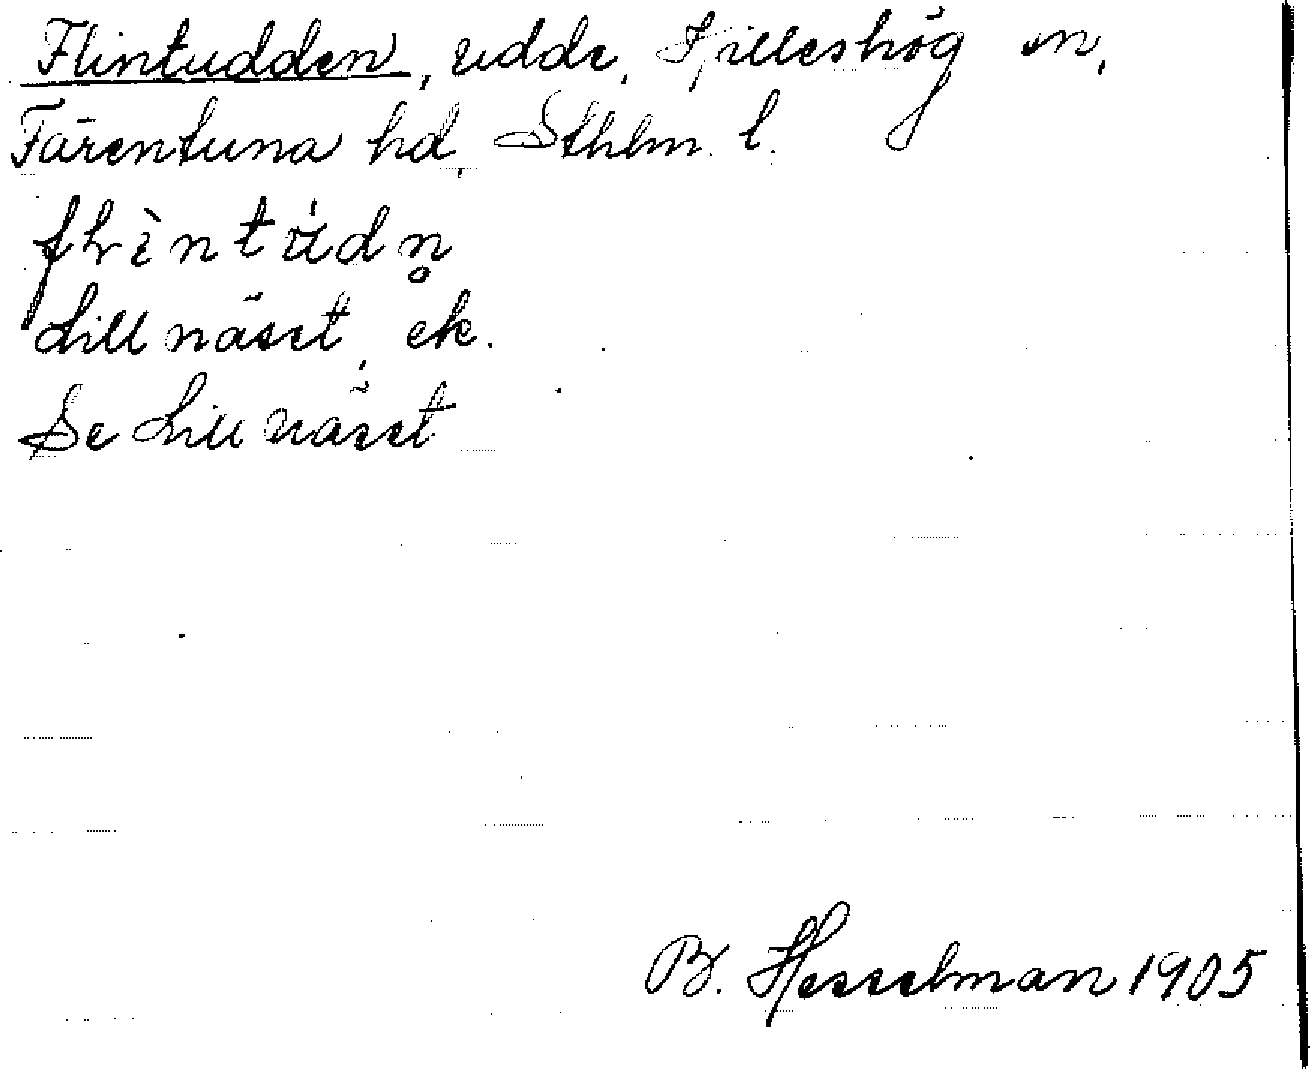 Flintudden, udde, Hilleshög sn,
Färentuna hd, Sthlm. l.
flìntùdn̥
Lillnäset, ek.
Se Lillnäset
B. Hesselman 1905